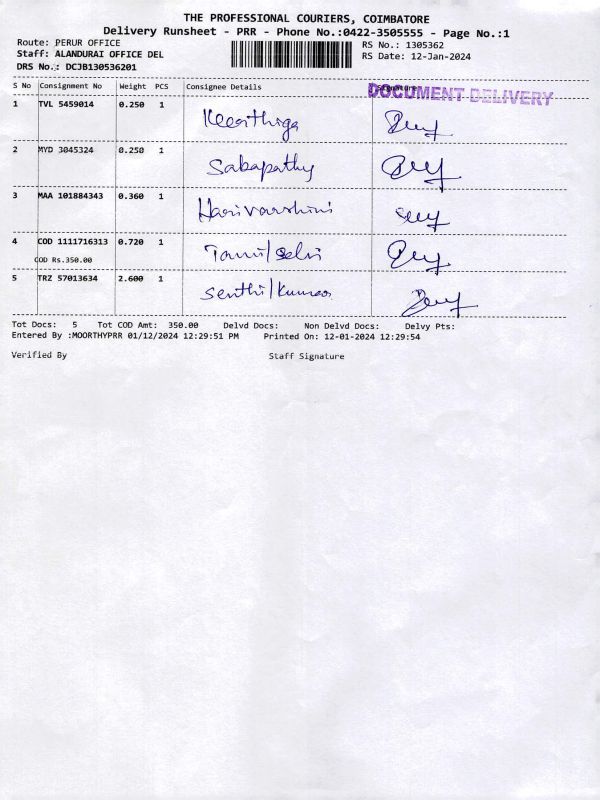 THE PROFESSIONAL COURIERS, COIMBATORE
Delivery Runsheet - PRR - Phone No.:0422-3505555 - Page No.:1
Route: PERUR OFFICE
RS No.: 1305362
Staff: ALANDURAI OFFICE DEL
RS Date: 12-Jan-2024
DRS No.: DCJB130536201
S No Consignment No Weight PCS Consignee Details Signature
DOCUMENT DELIVERY
1 TVL 5459014 0.250 1 Keerthiga
2 MYD 3045324 0.250 1 Sabapathy
3 MAA 101884343 0.360 1 Harivarshini
4 COD 1111716313 0.720 1 Tamil selvi
COD Rs.350.00
5 TRZ 57013634 2.600 1 Senthil kumar
Tot Docs: 5 Tot COD Amt: 350.00 Delvd Docs: Non Delvd Docs: Delvy Pts:
Entered By :MOORTHYPRR 01/12/2024 12:29:51 PM Printed On: 12-01-2024 12:29:54
Verified By Staff Signature